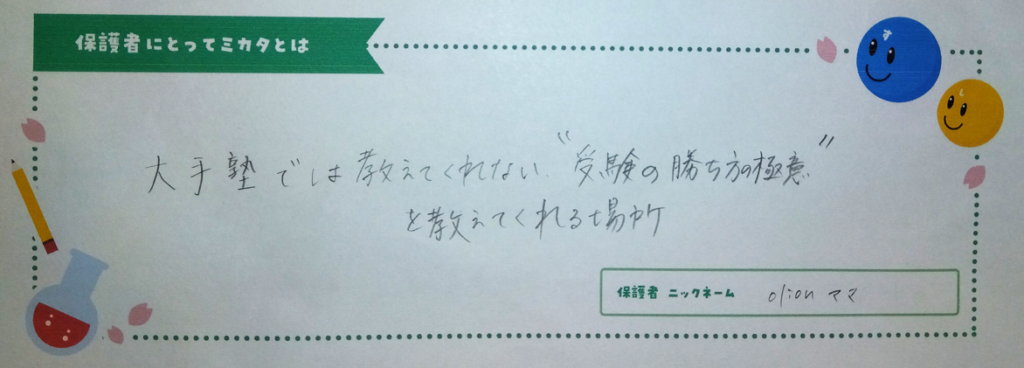 保護者にとってミカタとは
す
し
大手塾では教えてくれない“受験の勝ち方の極意”
を教えてくれる場所
保護者 ニックネーム olion ママ